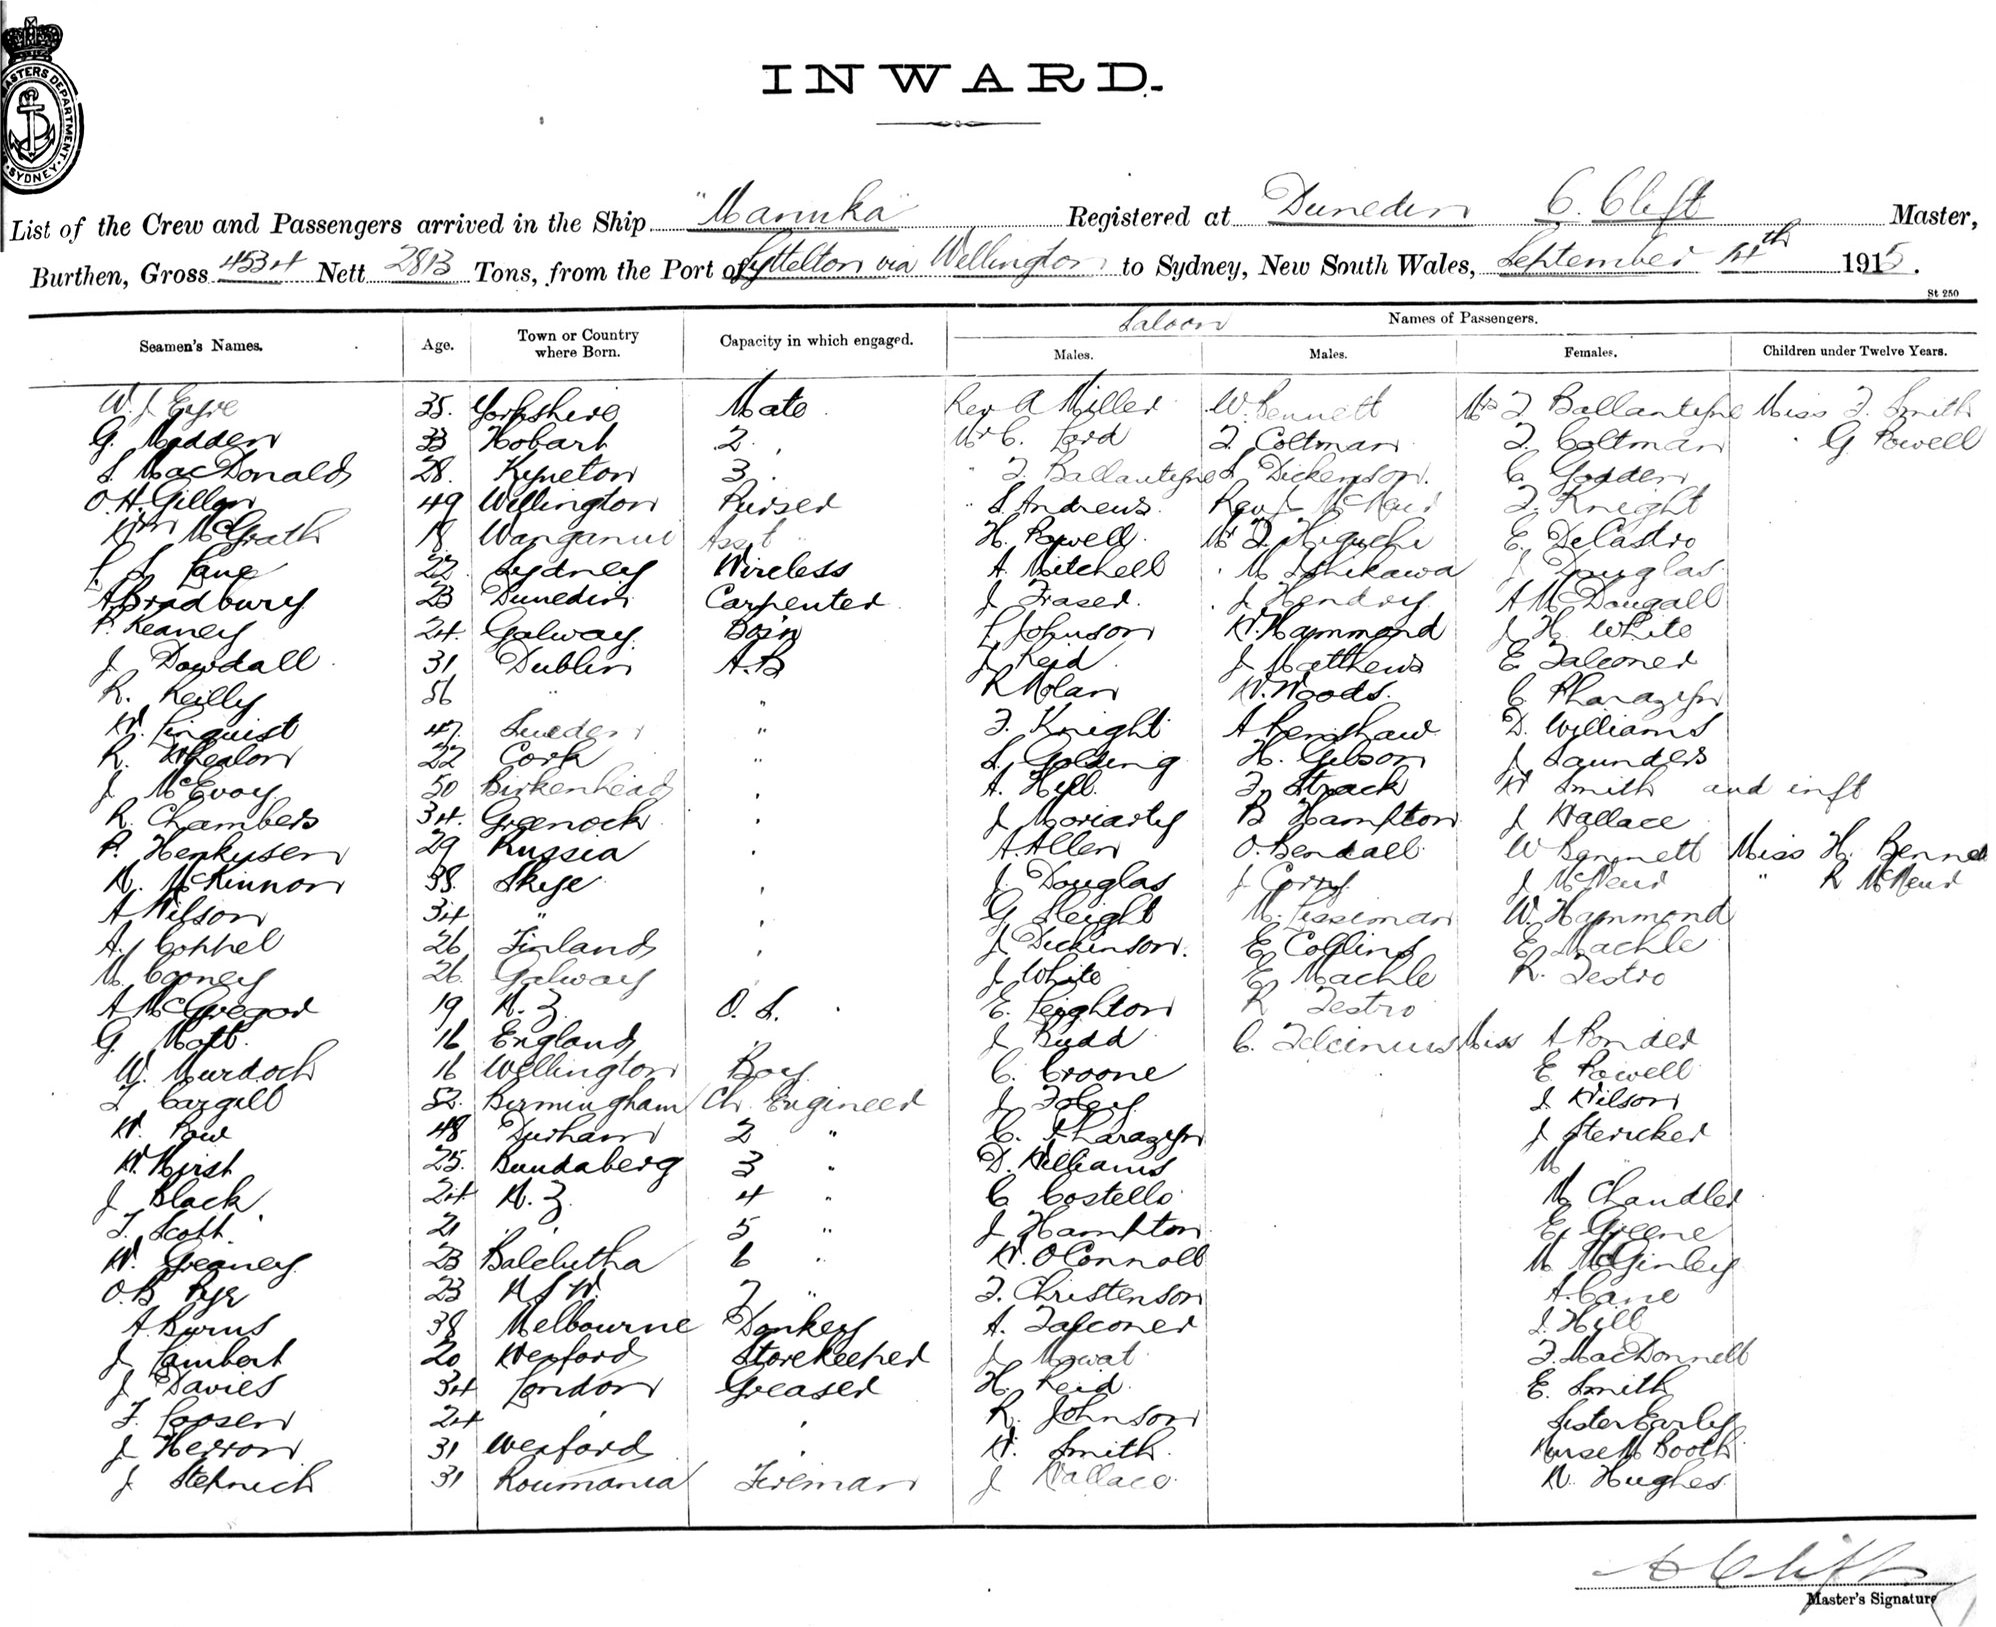 MASTERS DEPARTMENT · SYDNEY ·
INWARD.
List of the Crew and Passengers arrived in the Ship "Manuka" Registered at Dunedin C. Clift Master,
Burthen, Gross 4534 Nett 2813 Tons, from the Port of Lyttelton via Wellington to Sydney, New South Wales, September th 1915.
St 250
Saloon Names of Passengers.
Seamen's Names. Age. Town or Country where Born. Capacity in which engaged. Males. Males. Females. Children under Twelve Years.
W. J. Eyre 35. Yorkshire Mate Rev A Miller W. Bennett Mrs F Ballantyne Miss F. Smith
G. Madden 33 Hobart 2 " Mr C. Lord F. Coltman F. Coltman " G Powell
S. MacDonald 28. Kyneton 3 " " F. Ballantyne S. Dickenson. C Godden
O. H. Gillon 49 Wellington Purser " S. Andrews. Rev J. McNeur F. Knight
Wm McGrath 18 Wanganui Asst " H. Powell. Mr F. Higuchi E. DeCastro
L. S. Lane 22 Sydney Wireless A. Mitchell " M Ishikawa J Douglas.
A Bradbury 23 Dunedin Carpenter J Fraser. " J Hendry A McDougall
P. Keaney 24. Galway. Bosn L Johnson W. Hammond J H. White
J Dowdall 31 Dublin A.B J Reid J Matthews E Falconer
R. Reilly 56 " " R Nolan W. Woods. C Pharazyn
W. Linquist 47. Sweden " F. Knight A Renshaw D. Williams
R. Whealon 22 Cork " S. Golding H. Gibson J Saunders
J McEvoy 50 Birkenhead " A. Hill. F. Strack W Smith and inft
R. Chambers 34. Greenock " J Moriarty B Hampton J Wallace
P. Henkusen 29 Russia " A. Allen O. Bendall W Bennett Miss H. Benne
N. McKinnon 38. Skye " J. Douglas J Corry J McNeur " R McNeur
A Wilson 34 " " G Sleight M. Lissiman W. Hammond
A. Coppel 26 Finland " J Dickinson. E Collins E Machle
M Cooney 26 Galway " J White E Machle R. Testro
A McGregor 19 N.Z. O.S. " E. Leighton R Testro
G. Mott 16 England " J Rudd C. Miss A Ponder
W. Murdoch 16 Wellington Boy C. Croone E Powell
J Cargill 52. Birmingham Ch. Engineer J Foley J. Wilson
W. Pow 48 Durham 2 " C. Pharazyn J Stericker
W. Hirst 25. Bundaberg 3 " D. Williams M
J Black 24 N.Z. 4 " C Costello M Chandler
T. Scott 21 " " 5 " J Hampton E. Greene
W. Greaney 23 Balclutha 6 " W. O'Connell M McGinley
O. B Pye 23 N S W. 7 " F. Christenson A. Cane
A. Burns 38 Melbourne Donkey A. Falconer J. Hill
J Lambert 20 Wexford Storekeeper J Mowat F. MacDonnell
J Davies 34 London Greaser H. Reid. E. Smith
F. Loosen 24 " " R. Johnson Sister Earley
J Herron 31 Wexford " W. Smith. Nurse M Booth
J Stepnich 31 Roumania Fireman J Wallace N. Hughes.
C Clift
Master's Signature